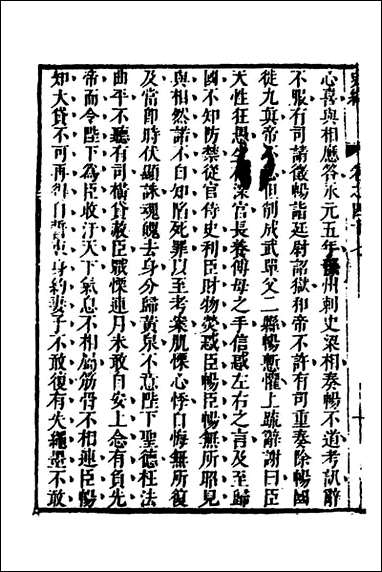 心喜與相應答永元五年豫州刺史梁相奏暢不道考訊辭
不服有司請徵暢詣廷尉詔獄和帝不許有司重奏除暢國
徙九眞帝不忍但削成武單父二縣暢慙懼上疏辭謝曰臣
天性狂愚生在深宮長養傅母之手信惑左右之言及至歸
國不知防禁從官侍史利臣財物熒惑臣暢臣暢無所昭見
與相然諾不自知陷死罪以至考案肌慄心悸自悔無所復
及當卽時伏顯誅魂魄去身分歸黃泉不意陛下聖德枉法
曲平不聽有司橫貸赦臣戰慄連月未敢自安上念有負先
帝而令陛下爲臣收汙天下氣息不相屬筋骨不相連臣暢
知大貸不可再得自誓束身約妻子不敢復有失繩墨不敢